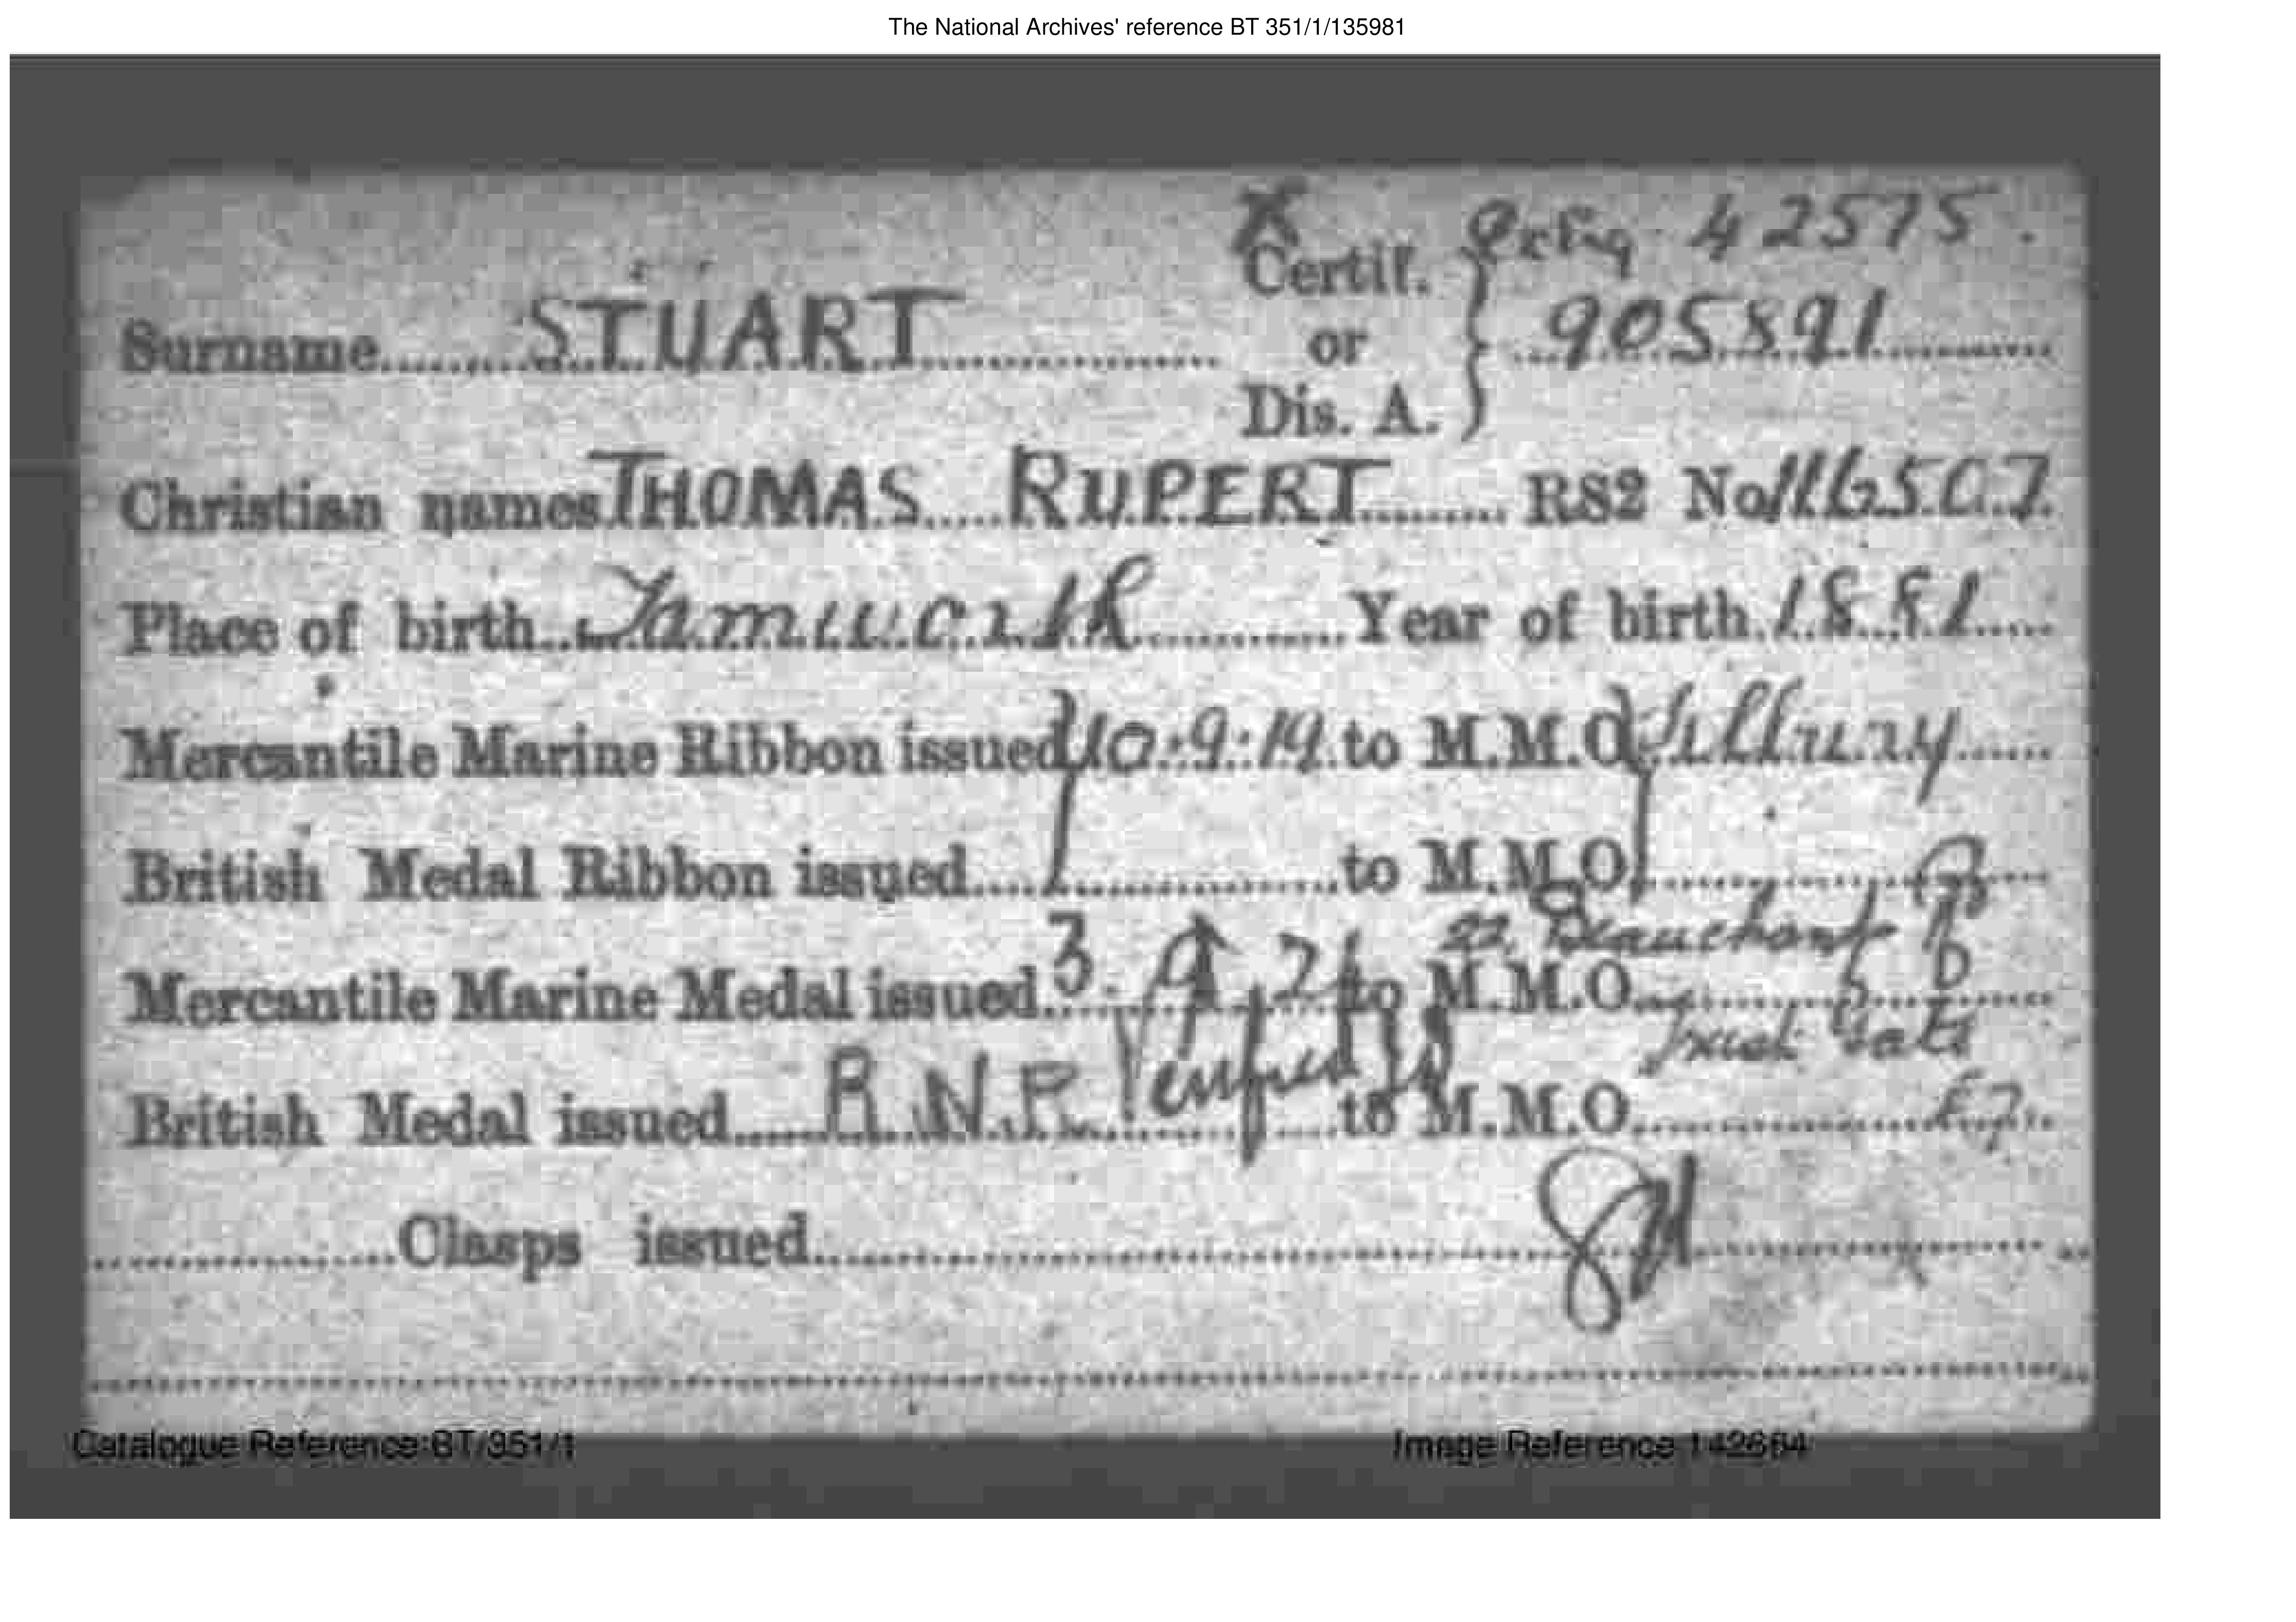 The National Archives' reference BT 351/1/135981
42575.
Surname STUART Certif. or Dis. A. } 905891
Christian names THOMAS RUPERT RS2 No 116507
Place of birth Tamworth Year of birth 1881
Mercantile Marine Ribbon issued 10.9.19 to M.M.O Tilbury
British Medal Ribbon issued to M.M.O.
22, Beauchamp
Mercantile Marine Medal issued 3. 21 to M.M.O.
British Medal issued R.N.R. to M.M.O. E7.
Clasps issued
Catalogue Reference:BT/351/1 Image Reference:142664